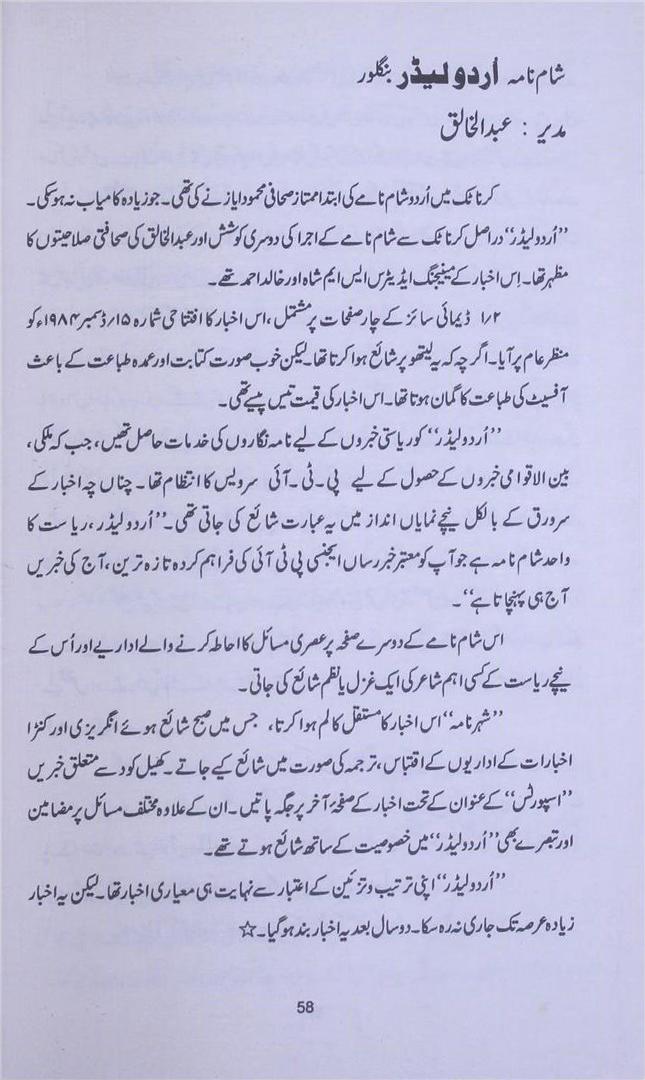 شام نامہ اُردو لیڈر بنگلور
مدیر : عبدالخالق
کرناٹک میں اُردو شام نامے کی ابتدا ممتاز صحافی محمود ایاز نے کی تھی۔ جو زیادہ کامیاب نہ ہو سکی۔
”اُردو لیڈر“ دراصل کرناٹک سے شام نامے کے اجرا کی دوسری کوشش اور عبدالخالق کی صحافتی صلاحیتوں کا
مظہر تھا۔ اِس اخبار کے مینیجنگ ایڈیٹرس ایس ایم شاہ اور خالد احمد تھے۔
۱/۲ ڈیمائی سائز کے چار صفحات پر مشتمل، اس اخبار کا افتتاحی شمارہ ۱۵/ڈسمبر ۱۹۸۴ء کو
منظر عام پر آیا۔ اگرچہ کہ یہ لیتھو پر شائع ہوا کرتا تھا۔ لیکن خوب صورت کتابت اور عمدہ طباعت کے باعث
آفسیٹ کی طباعت کا گمان ہوتا تھا۔ اس اخبار کی قیمت تیس پیسے تھی۔
”اُردو لیڈر“ کو ریاستی خبروں کے لیے نامہ نگاروں کی خدمات حاصل تھیں، جب کہ ملکی،
بین الاقوامی خبروں کے حصول کے لیے پی۔ٹی۔آئی سرویس کا انتظام تھا۔ چناں چہ اخبار کے
سرورق کے بالکل نیچے نمایاں انداز میں یہ عبارت شائع کی جاتی تھی۔ ”اُردو لیڈر، ریاست کا
واحد شام نامہ ہے جو آپ کو معتبر خبر رساں ایجنسی پی ٹی آئی کی فراہم کردہ تازہ ترین، آج کی خبریں
آج ہی پہنچاتا ہے“۔
اس شام نامے کے دوسرے صفحہ پر عصری مسائل کا احاطہ کرنے والے اداریے اور اُس کے
نیچے ریاست کے کسی اہم شاعر کی ایک غزل یا نظم شائع کی جاتی۔
”شہر نامہ“ اس اخبار کا مستقل کالم ہوا کرتا، جس میں صبح شائع ہوئے انگریزی اور کنڑا
اخبارات کے اداریوں کے اقتباس، ترجمہ کی صورت میں شائع کیے جاتے۔ کھیل کود سے متعلق خبریں
”اسپورٹس“ کے عنوان کے تحت اخبار کے صفحۂ آخر پر جگہ پاتیں۔ ان کے علاوہ مختلف مسائل پر مضامین
اور تبصرے بھی ”اُردو لیڈر“ میں خصوصیت کے ساتھ شائع ہوتے تھے۔
”اُردو لیڈر“ اپنی ترتیب و تزئین کے اعتبار سے نہایت ہی معیاری اخبار تھا۔ لیکن یہ اخبار
زیادہ عرصہ تک جاری نہ رہ سکا۔ دو سال بعد یہ اخبار بند ہو گیا۔ ☆
58